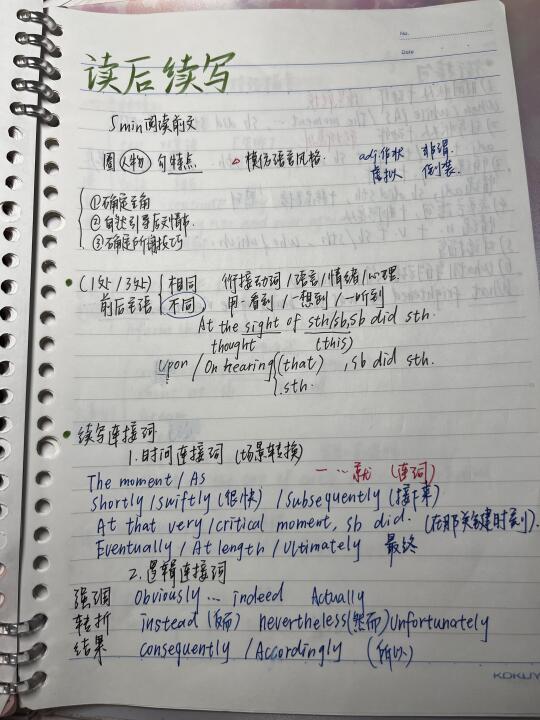 No.
Date
读后续写
5min阅读前文
圈 人物 句特点 模仿语言风格 adj.作状 非谓
虚拟 倒装
①确定主角
②自然引导后文情节
③确定所用技巧
(1处/3处) 相同 衔接动词/语言/情绪/心理
前后主语 不同 用一看到/一想到/一听到
At the sight of sth/sb, sb did sth.
thought (this)
Upon/On hearing (that) , sb did sth.
sth.
续写连接词
1.时间连接词 (场景转换)
The moment/As 一…就 (连词)
shortly/swiftly(很快)/subsequently(接下来)
At that very/critical moment, sb did. (在那关键时刻).
Eventually/At length/Ultimately 最终
2.逻辑连接词
强调 Obviously... indeed Actually
转折 instead(反而) nevertheless(然而) Unfortunately
结果 consequently/Accordingly (所以)
KOKUY